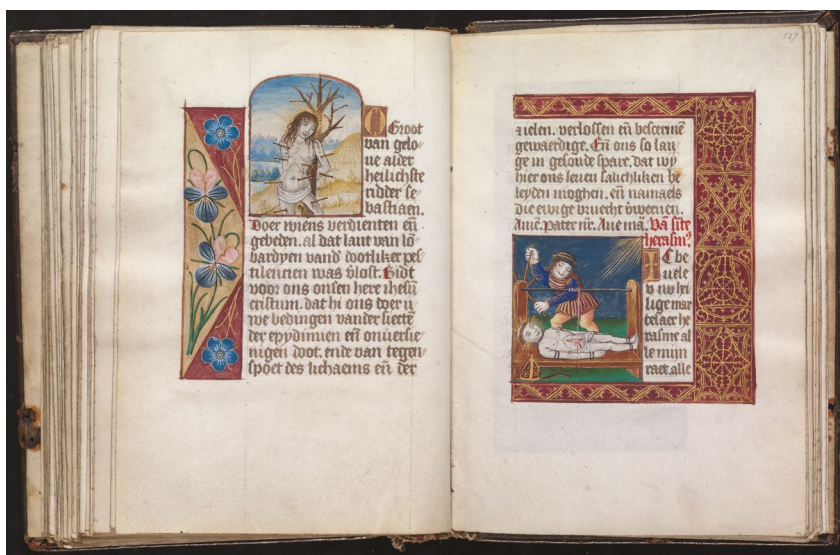 O Groot
van gelo
ue alder
heilichste
ridder se
bastiaen.
Doer wiens verdienten eñ
gebeden. al dat lant van lō
bardyen vand dootliker pes
tilencien was v̄lost. Bidt
voor ons onsen here ihesū
cristum. dat hi ons doer u
we bedingen vander siecten
der epydimien eñ onuersie
nigen doot. ende van tegen
spoet des lichaems eñ der
137
zielen. verlossen eñ bescermē
gewaerdige. Eñ ons so lan
ge in gesonde spare. dat wy
hier ons leuen salichliken be
leyden moghen. eñ namaels
die ewige vruecht v̄weruen.
Amē. Pater nr̄. Aue mā. Vā sīte
herasm9
IC be
uele
v uwe hei
lige mar
telaer he
rasme al
le mijn
raet. alle